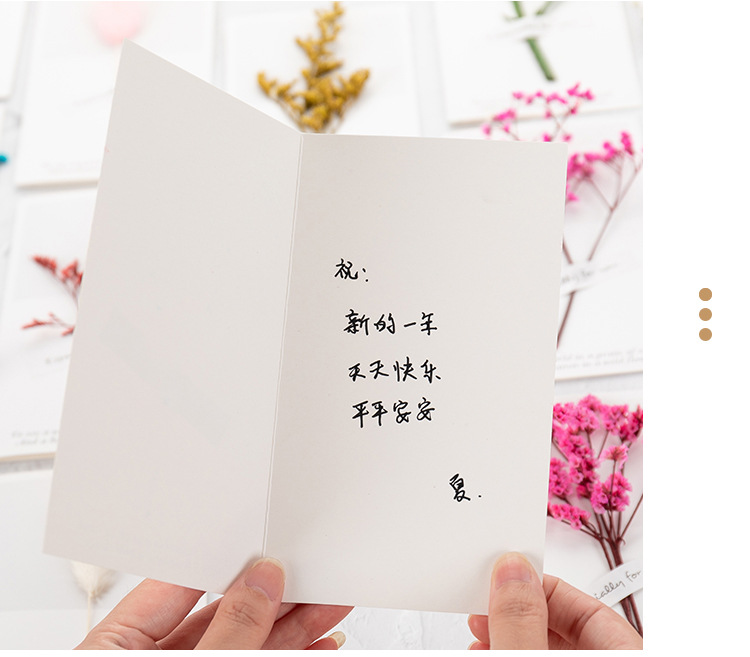 祝:
新的一年
天天快乐
平平安安
夏.
ially for